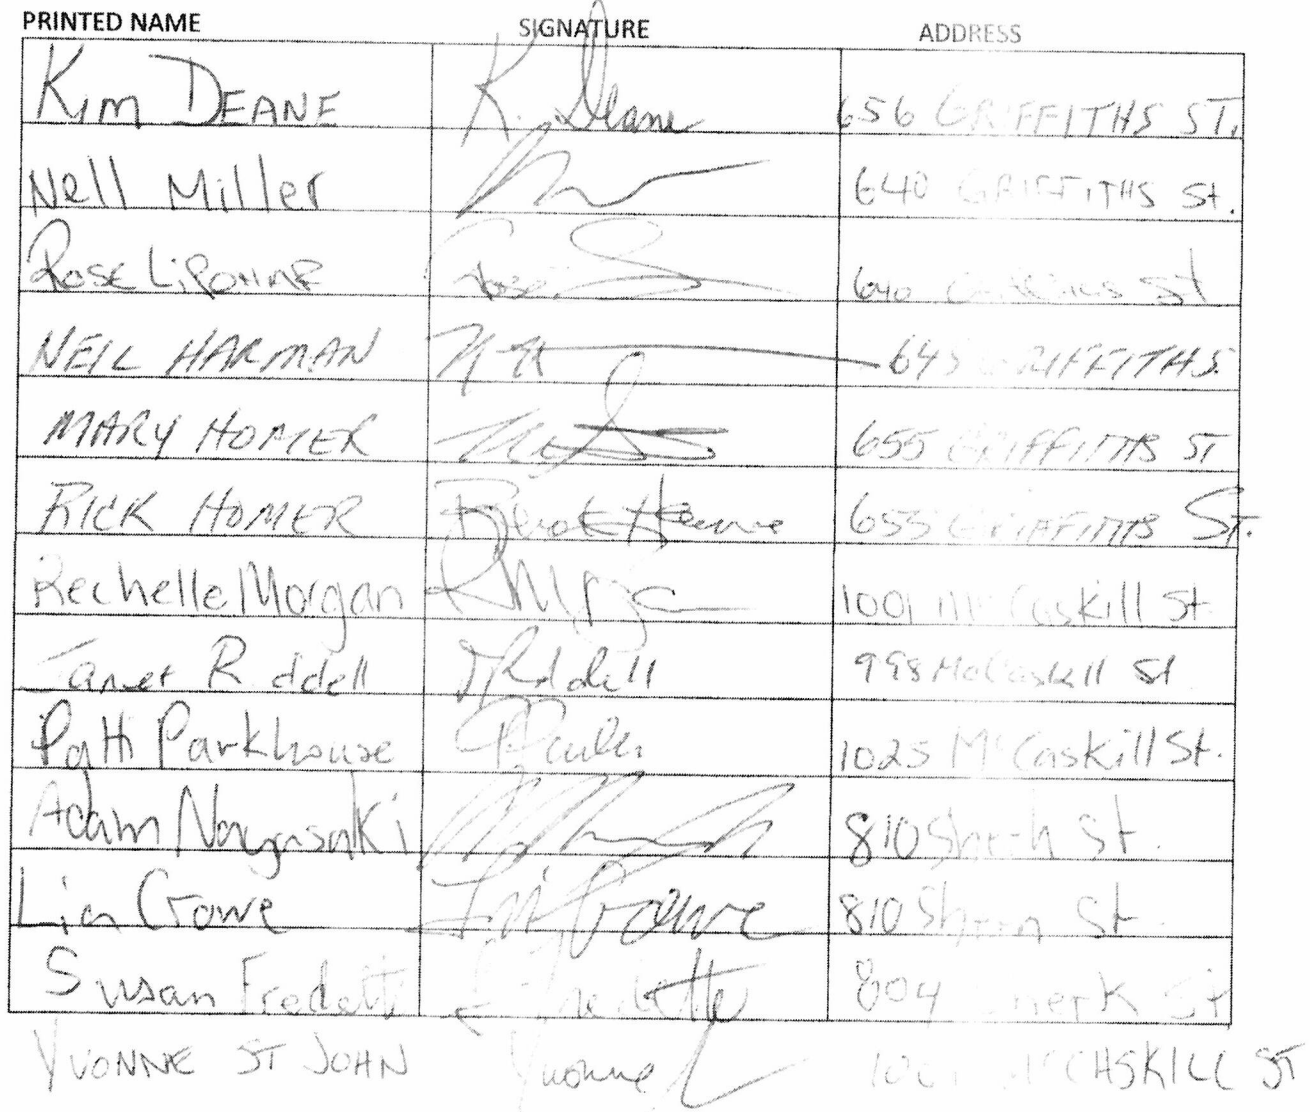 PRINTED NAME SIGNATURE ADDRESS
Kim DEANE K. Deane 656 GRIFFITHS ST.
Nell Miller 640 GRIFFITHS St.
ROSE 640 St
NEIL HARMAN 643 GRIFFITHS
MARY HOMER 655 GRIFFITHS ST
RICK HOMER 655 GRIFFITHS ST.
Rechelle Morgan 1001 McCaskill St.
Janet Riddell JRiddell 998 McCaskill St
Patti Parkhouse 1025 McCaskill St.
Adam 810 St.
Crowe Crowe 810 St.
Susan Fredette Fredette 804 St
YVONNE ST JOHN Yvonne MCCASKILL ST